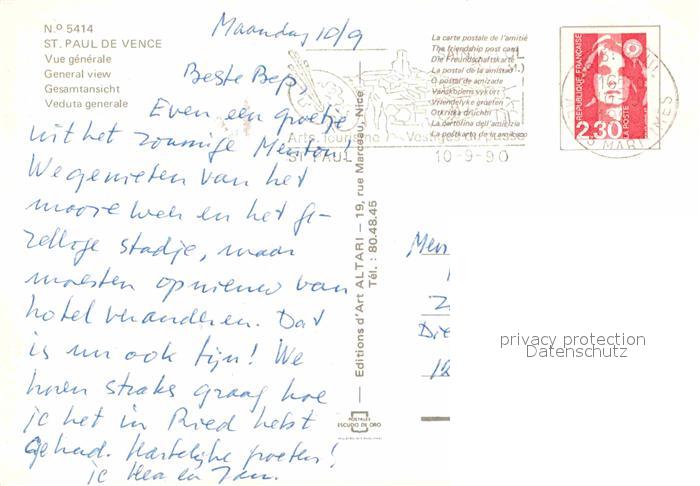 N.º 5414
ST. PAUL DE VENCE
Vue générale
General view
Gesamtansicht
Veduta generale
Maandag 10/9
Beste Bep,
Even een groetje
uit het zonnige Menton!
We genieten van het
mooie weer en het ge-
zellige stadje, maar
moesten opnieuw van
hotel veranderen. Dat
is nu ook fijn! We
horen straks graag hoe
je het in Ried hebt
gehad. Hartelijke groeten!
je en Jan.
La carte postale de l'amitié
The friendship post card
Die Freundschaftskarte
La postal de la amistad
O postal de amizade
Vanskapens vykort
Vriendelyke groeten
Otkritka druchbi
La cartolina dell'amicizia
La postkarto de la amikeco
Arts Tourisme Vestiges du passé
ST PAUL 10-9-90
REPUBLIQUE FRANÇAISE
2,30 LA POSTE
MARITIMES
Editions d'Art ALTARI – 19, rue Marceau, Nice
Tél.: 80.48.45
POSTALES
ESCUDO DE ORO
Die
privacy protection
Datenschutz